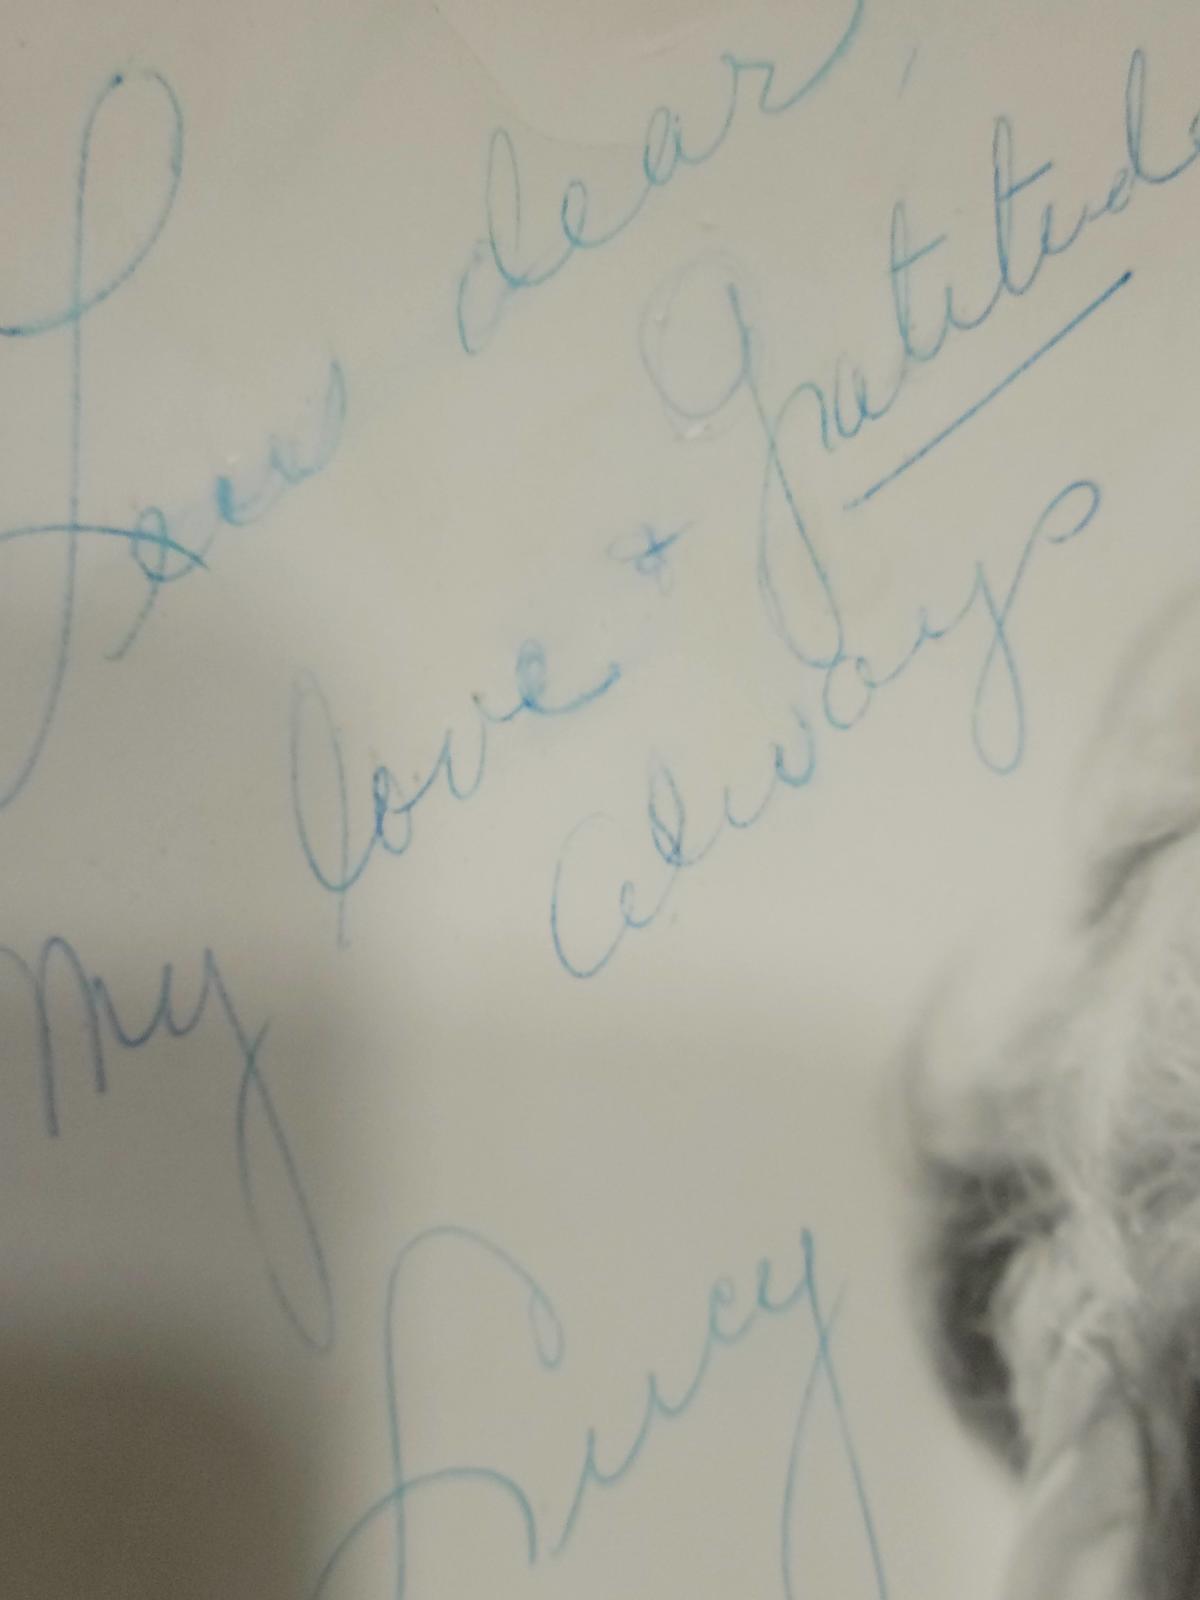 Lew dear,
My love & Gratitude
always
Lucy